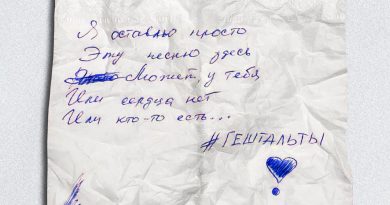 Я оставлю просто
Эту песню здесь
Может, у тебя
Или сердца нет
Или кто-то есть...
#ГЕШТАЛЬТЫ